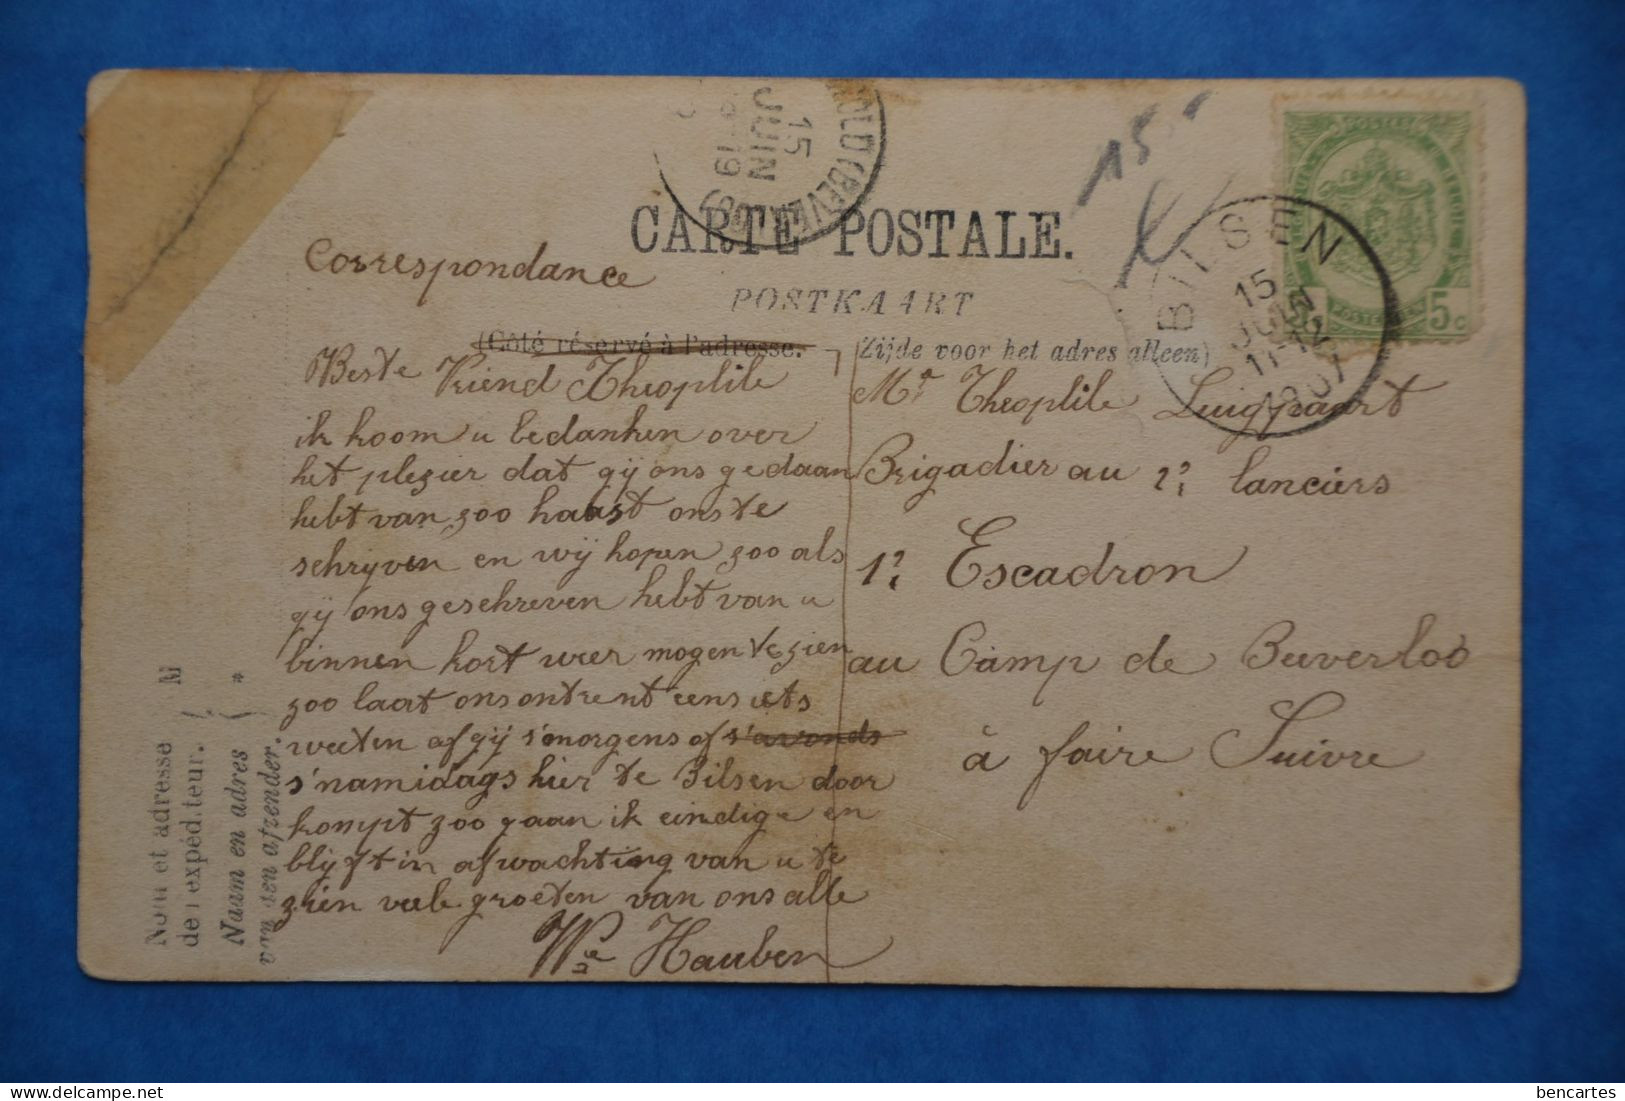 15
JUIN
CARTE POSTALE.
POSTKAART
(Côté réservé à l'adresse.
Zijde voor het adres alleen)
15
BILSEN
15
JUIN
11-12
1907
POSTERIJEN
5c
Correspondance
Beste Vriend Theoplile
ik koom u bedanken over
het plezier dat gij ons gedaan
hebt van zoo haast ons te
schrijven en wij hopen zoo als
gij ons geschreven hebt van u
binnen kort weer mogen te zien
zoo laat ons ontrent eens iets
weeten of gij s'morgens of s'avonds
s'namidags hier te Bilsen door
kompt zoo gaan ik eindige en
blijft in afwachting van u te
zien veele groeten van ons alle
We Hauben
Mr Theoplile
Brigadier au 1e lanciers
1e Escadron
au Camp de Beverloo
à faire Suivre
Nom et adresse
de l'expéditeur.
Naam en adres
van den afzender.
bencartes